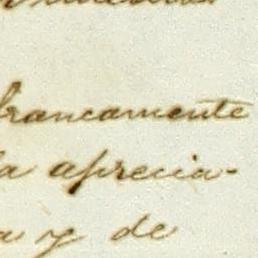 francamente
la aprecia-
a y de